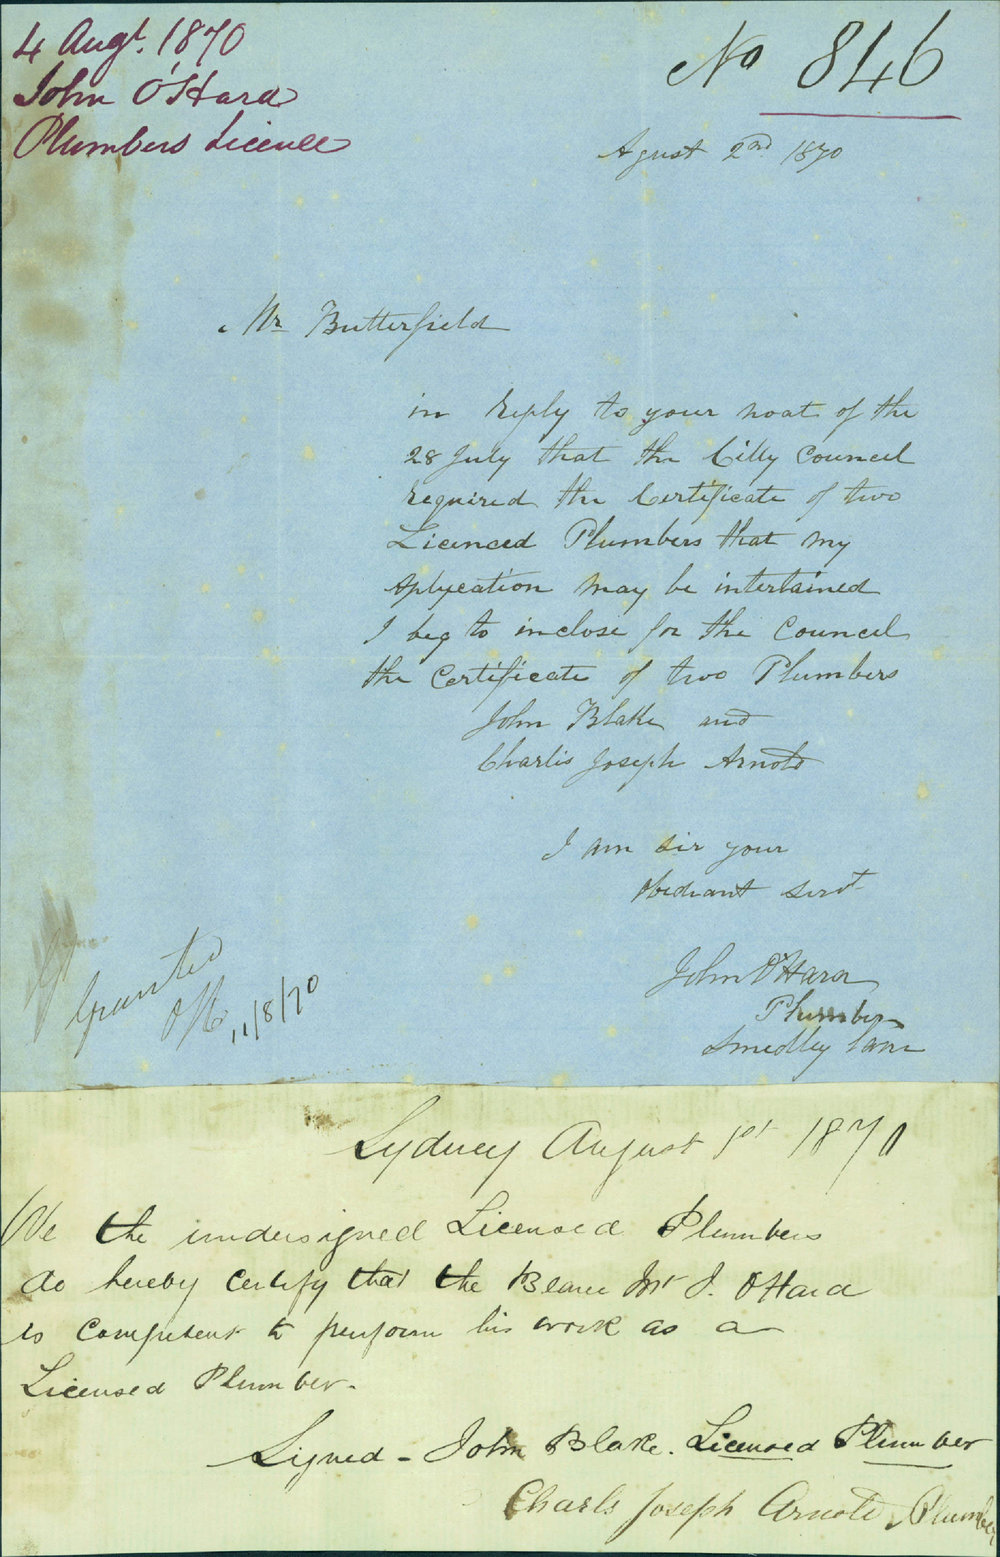 4 Augt. 1870
John O'Hara
Plumbers Licence
No 846
Agust 2nd 1870
Mr Butterfield
in reply to your noat of the
28 July that the Citty Council
required the Certificate of two
Licenced Plumbers that my
Aplycation may be intertained
I beg to inclose for the Council
the Certificate of two Plumbers
John Blake and
Charlis Joseph Arnold
I am sir your
Obediant servt
John O'Hara
Plumber
Smedley Lane
Granted
11/8/70
Sydney August 1st 1870
We the undersigned Licensed Plumbers
do hereby certify that the Bearer Mr J. OHara
is Competent to perform his work as a
Licensed Plumber.
Signed - John Blake. Licensed Plumber
Charls Joseph Arnold Plumber